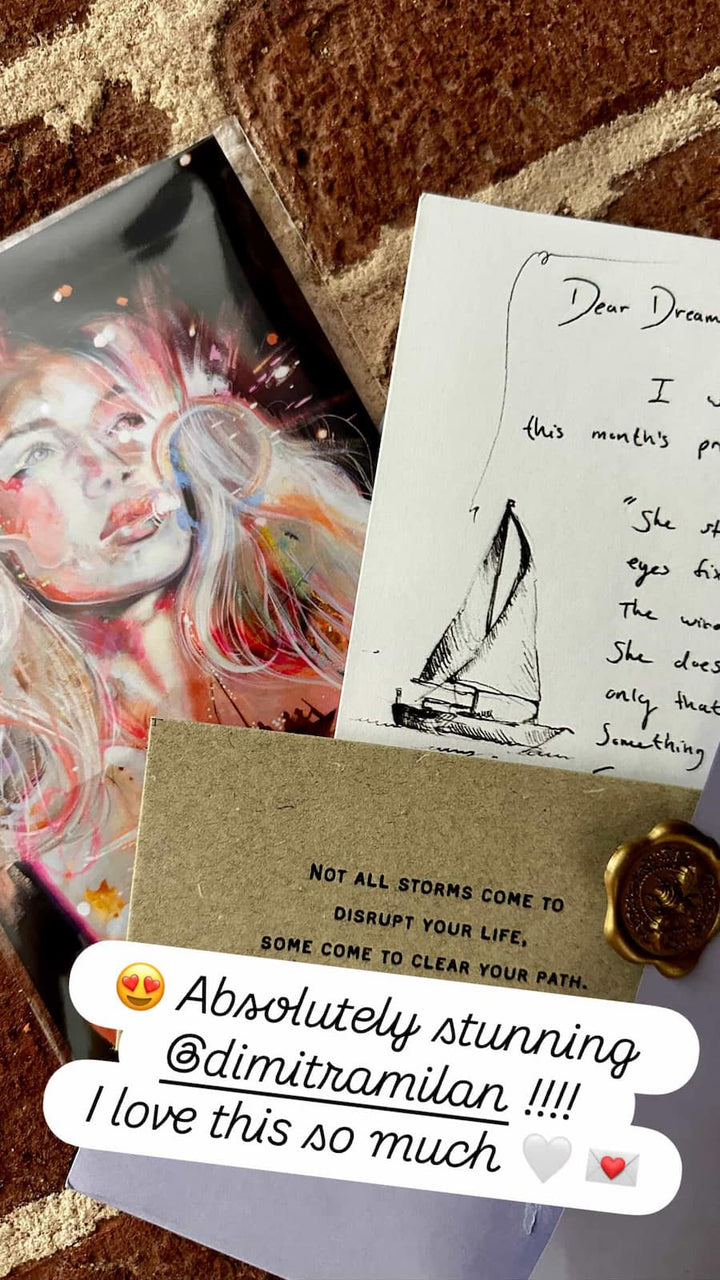 Dear Dream
I
this month's
"She
eyes
The
She does
only that
Something
NOT ALL STORMS COME TO
DISRUPT YOUR LIFE,
SOME COME TO CLEAR YOUR PATH.
😍 Absolutely stunning
@dimitramilan !!!!
I love this so much 🤍 💌